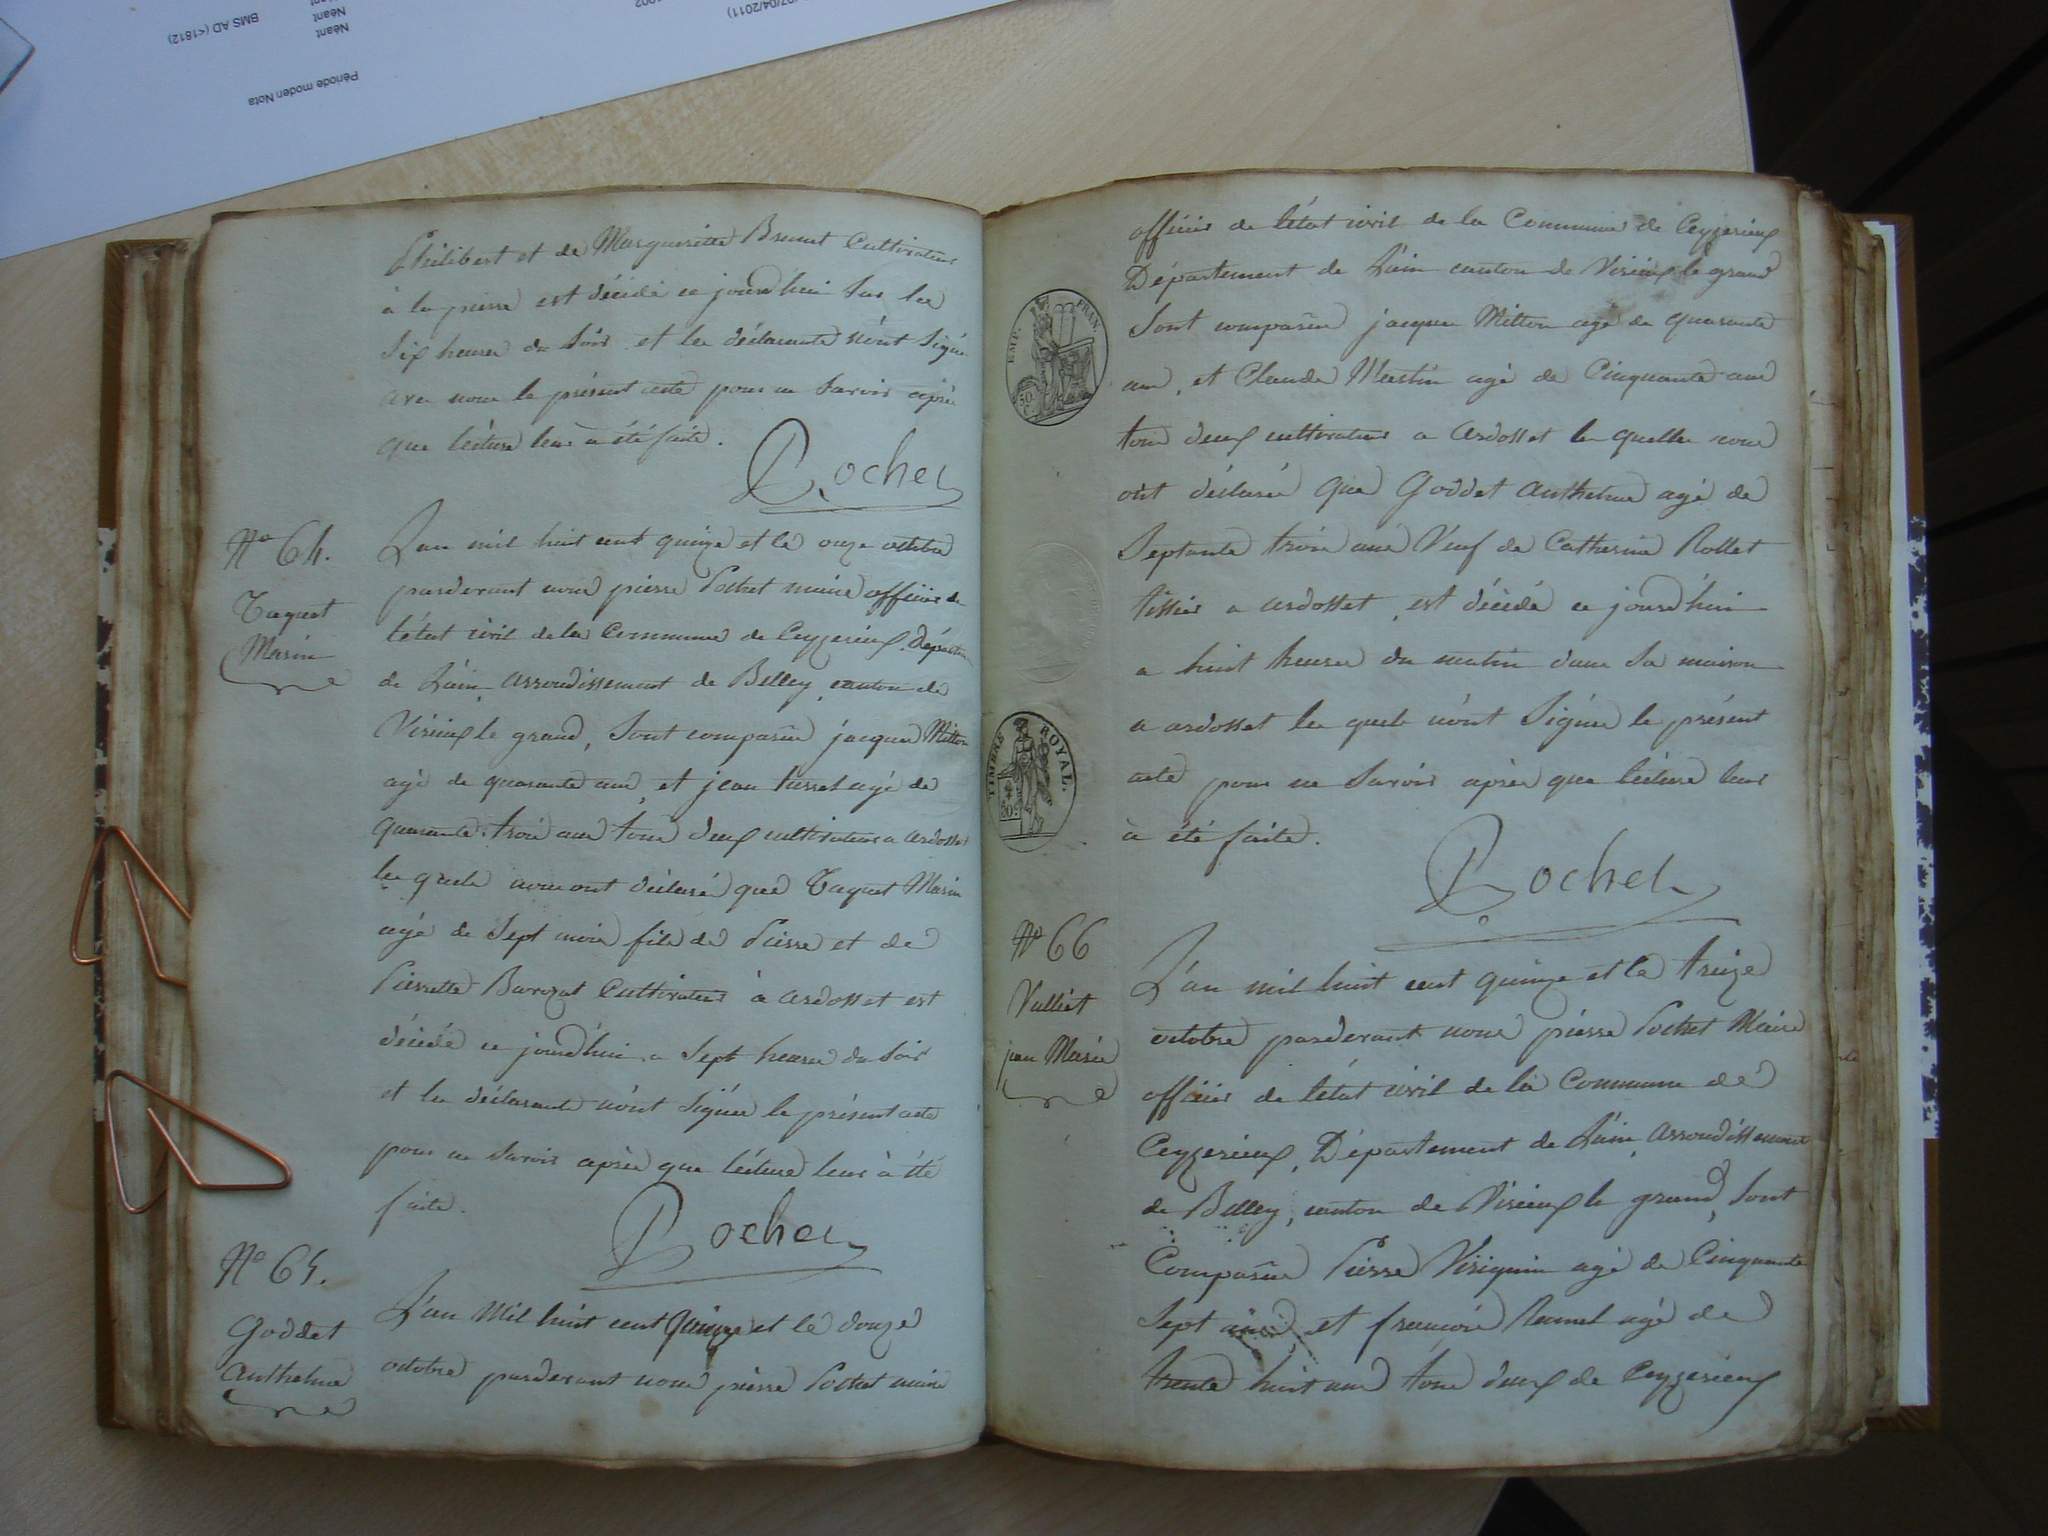 Période moden Nota
Néant
Néant
BMS AD (<1812)
07/04/2011)
Philibert et de Margueritte Brunet Cultivateur
à la pierre est décédé ce jourd'hui Sur les
Six heures du Soir et les déclarants n'ont Signé
avec nous le présent acte pour ne Savoir après
que lecture leur a été faite.
Pochet
N° 64.
Taquet
Marin
L'an mil huit cent quinze et le onze octobre
pardevant nous pierre Pochet maire officier de
l'état civil de la Commune de Ceyzerieux, Départem
de L'ain arrondissement de Belley, canton de
Virieux le grand, Sont comparus jacques Mitton
agé de quarante ans, et jean agé de
quarante trois ans tous deux cultivateurs a ardosset
les quels nous ont déclaré que Taquet Marin
agé de Sept mois fils de Pierre et de
Pierrette Barozat Cultivateur à ardosset est
décédé ce jourd'hui a Sept heures du Soir
et les déclarants n'ont Signés le présent acte
pour ne Savoir après que lecture leur à été
faite.
Pochet
N° 65.
Goddet
Anthelme
L'an Mil huit cent Quinze et le douze
octobre pardevant nous pierre Pochet maire
officier de l'état civil de la Commune de Ceyzerieux
Département de L'ain canton de Virieux le grand
Sont comparus jacques Mitton agé de quarante
ans, et Claude Martin agé de Cinquante ans
tous deux cultivateurs a ardosset les quelles nous
ont déclarés que Goddet Anthelme agé de
Septante trois ans Veuf de Catherine Rollet
tissier a ardosset, est décédé ce jourd'hui
a huit heures du matin dans Sa maison
a ardosset les quels n'ont Signés le présent
acte pour ne Savoir après que lecture leur
à été faite.
Pochet
EMP. FRAN.
50 C.
TIMBRE ROYAL.
N° 66
Valliet
jean Marie
L'an mil huit cent quinze et le treize
octobre pardevant nous pierre Pochet Maire
officier de l'état civil de la Commune de
Ceyzerieux, Département de L'ain, arrondissement
de Belley, canton de Virieux le grand, Sont
Comparus Pierre Virignin agé de Cinquante
Sept ans, et françois agé de
trente huit ans tous deux de Ceyzerieux